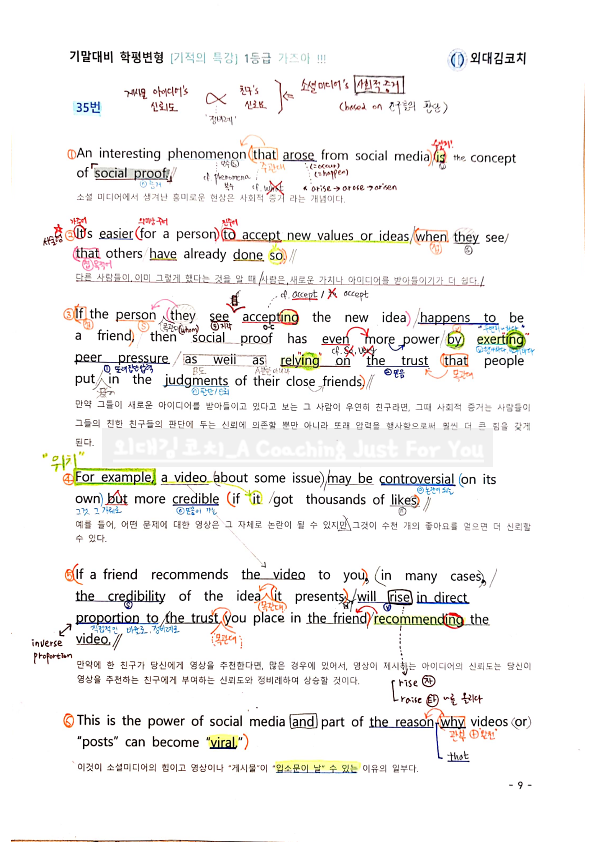 기말대비 학평변형 [기적의 특강] 1등급 가즈아 !!!
외대김코치
게시물 아이디어's 신뢰도 ∝ 친구's 신뢰도
"정비례"
소셜미디어's 사회적 증거
(based on 친구들의 판단)
35번
① An interesting phenomenon (that arose from social media) is the concept
of social proof.
cf. phenomena
복수
주관대
(=occur)
(=happen)
* arise → arose → arisen
소셜 미디어에서 생겨난 흥미로운 현상은 사회적 증거 라는 개념이다.
가주어
의미상 주어
진주어
② It's easier (for a person) to accept new values or ideas / when they see /
that others have already done so. //
다른 사람들이, 이미 그렇게 했다는 것을 알 때 /사람은, 새로운 가치나 아이디어를 받아들이기가 더 쉽다/
cf. accept / accept
③ If the person (they see accepting the new idea) / happens to be
(whom)
o.c
a friend, then social proof has even more power / by exerting
peer pressure / as well as relying on the trust (that people
목관대
put / in the judgments of their close friends) //
만약 그들이 새로운 아이디어를 받아들이고 있다고 보는 그 사람이 우연히 친구라면, 그때 사회적 증거는 사람들이
그들의 친한 친구들의 판단에 두는 신뢰에 의존할 뿐만 아니라 또래 압력을 행사함으로써 훨씬 더 큰 힘을 갖게
된다.
외대김코치_A Coaching Just For You
"위치"
④ For example, a video (about some issue) may be controversial (on its
own) but more credible (if it / got thousands of likes.)
예를 들어, 어떤 문제에 대한 영상은 그 자체로 논란이 될 수 있지만/그것이 수천 개의 좋아요를 얻으면 더 신뢰할
수 있다.
⑤ (If a friend recommends the video to you, (in many cases, /
the credibility of the idea (it presents) / will rise in direct
(목관대)
proportion to / the trust (you place in the friend) recommending the
직접적인 비율로, 정비례로
(목관대)
video. //
inverse
proportion
만약에 한 친구가 당신에게 영상을 추천한다면, 많은 경우에 있어서, 영상이 제시하는 아이디어의 신뢰도는 당신이
영상을 추천하는 친구에게 부여하는 신뢰도와 정비례하여 상승할 것이다.
rise 자
raise 타 ~를 올리다
⑥ This is the power of social media and part of the reason why videos (or)
"posts" can become "viral."
that
이것이 소셜미디어의 힘이고 영상이나 "게시물"이 "입소문이 날" 수 있는 이유의 일부다.
- 9 -